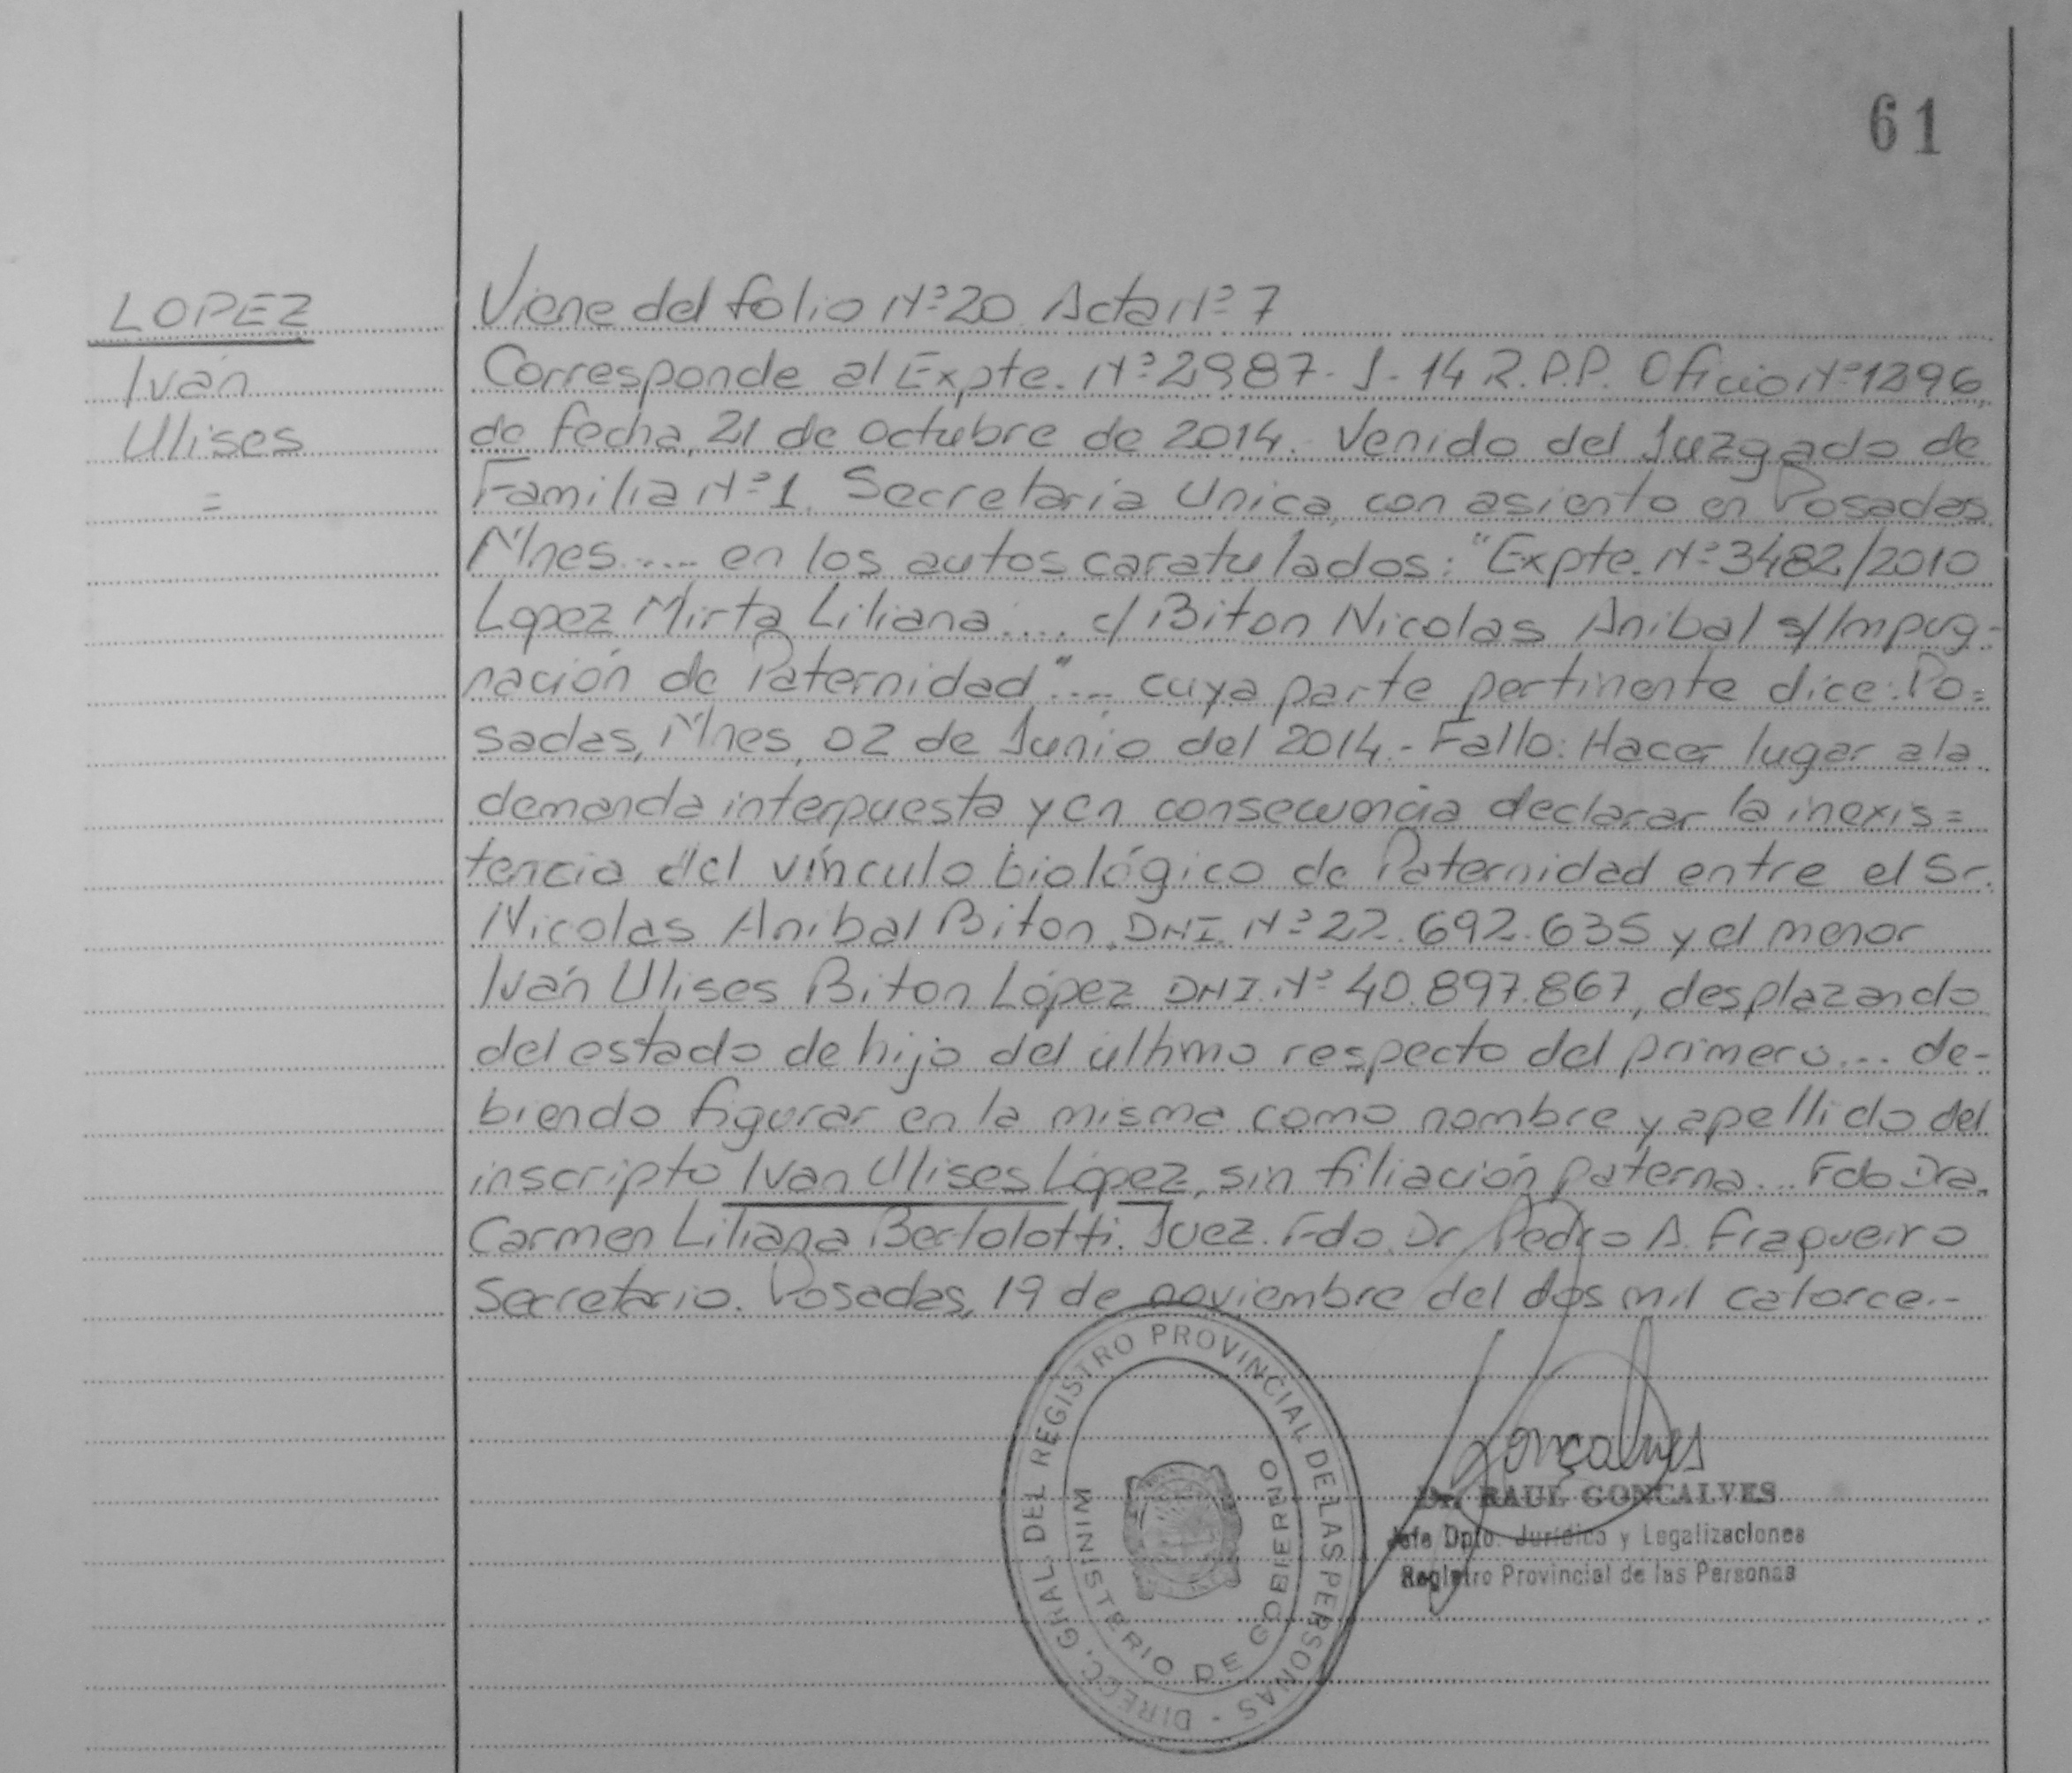 61
LOPEZ
Iván
Ulises
=
Viene del folio Nº 20 Acta Nº 7
Corresponde al Expte. Nº 2987-J-14 R.P.P. Oficio Nº 1296
de fecha, 21 de octubre de 2014.- Venido del Juzgado de
Familia Nº 1. Secretaría Unica, con asiento en Posadas
Mnes..... en los autos caratulados: "Expte. Nº 3482/2010
Lopez Mirta Liliana..... c/ Biton Nicolas Anibal s/ Impug-
nación de Paternidad".... cuya parte pertinente dice: Po=
sadas, Mnes, 02 de Junio del 2014.- Fallo: Hacer lugar a la
demanda interpuesta y en consecuencia declarar la inexis=
tencia del vínculo biológico de Paternidad entre el Sr.
Nicolas Anibal Biton, DNI. Nº 22.692.635 y el menor
Iván Ulises Biton López DNI. Nº 40.897.867, desplazando
del estado de hijo del último respecto del primero... de-
biendo figurar en la misma como nombre y apellido del
inscripto Ivan Ulises López, sin filiación paterna... Fdo Dra.
Carmen Liliana Bertolotti. Juez. Fdo. Dr Pedro A. Fragueiro
Secretario. Posadas, 19 de noviembre del dos mil catorce.-
DIRECC. GRAL. DEL REGISTRO PROVINCIAL DE LAS PERSONAS -
MINISTERIO DE GOBIERNO
Gonçalves
Dr. RAUL GONCALVES
Jefe Dpto. Jurídico y Legalizaciones
Registro Provincial de las Personas